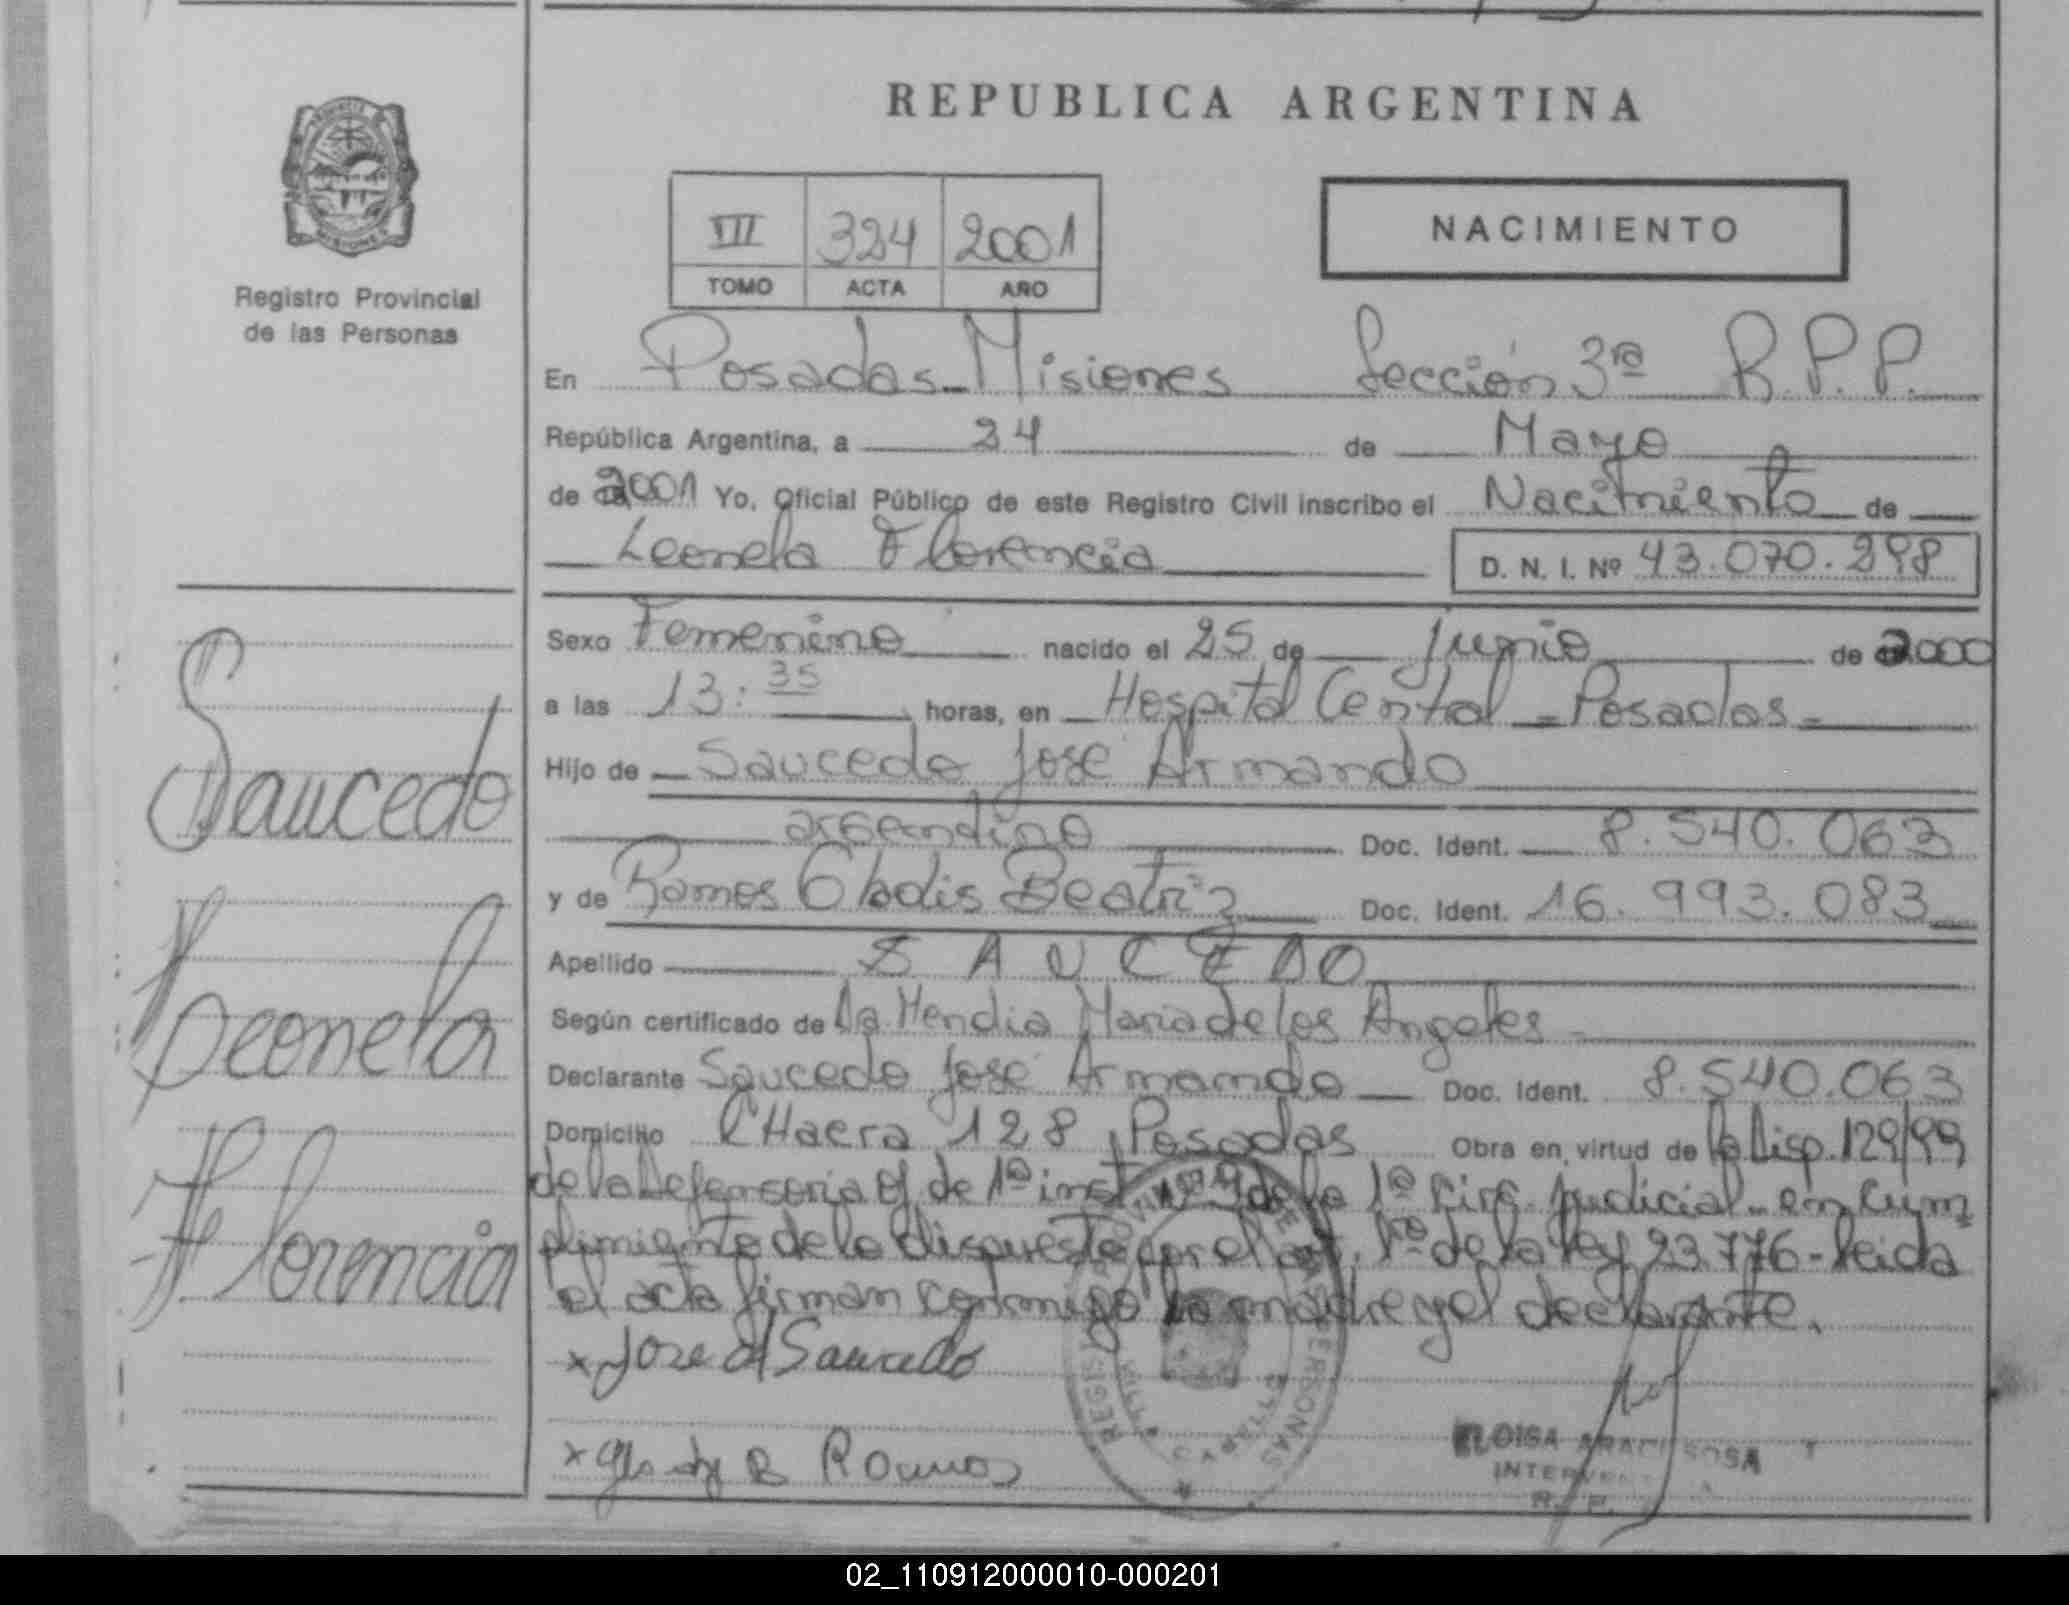 REPUBLICA ARGENTINA
III 324 2001
TOMO ACTA AÑO
NACIMIENTO
Registro Provincial
de las Personas
En Posadas - Misiones Sección 3ra R.P.P.
República Argentina, a 24 de Mayo
de 2001 Yo, Oficial Público de este Registro Civil inscribo el Nacimiento de
Leonela Florencia
D. N. I. Nº 43.070.298
Sexo Femenino nacido el 25 de Junio de 2000
a las 13:35 horas, en Hospital Central - Posadas -
Hijo de Saucedo José Armando
argentino Doc. Ident. 8.540.063
y de Ramos Gladis Beatriz Doc. Ident. 16.993.083
Apellido SAUCEDO
Según certificado de Da. Hendia Maria de los Angeles
Declarante Saucedo José Armando Doc. Ident. 8.540.063
Domicilio CHacra 128 Posadas Obra en virtud de la Disp. 129/99
de la Defensoria Of de 1º inst de la 1º Circ. Judicial - en cum
plimiento de lo dispuesto por el art. 1ro de la ley 23.776 - leida
el acta firman conmigo la madre y el declarante.
x Jose A Saucedo
x Gladys B Ramos
Saucedo
Leonela
Florencia
ELOISA SOSA
02_110912000010-000201